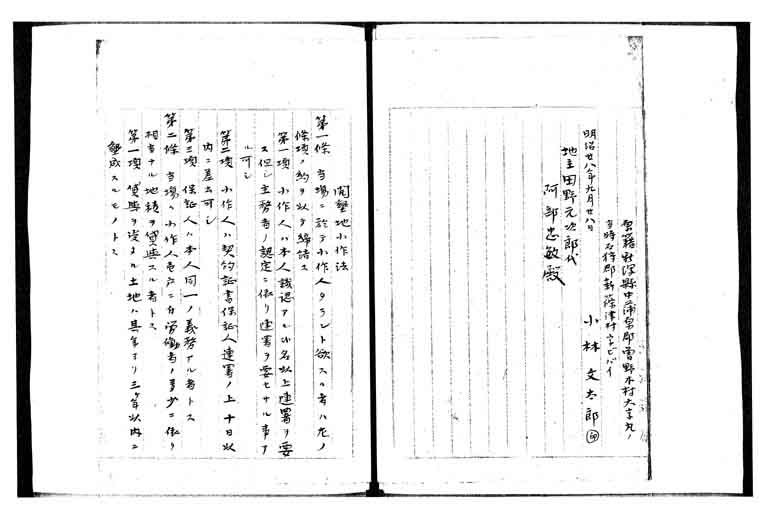 原籍新潟縣中蒲原郡曽野木村大字丸ノ
当時石狩郡新篠津村字ビバイ
小林文太郎 印
明治廿八年九月廿八日
地主田野元次郎代
阿部忠敏殿
開墾地小作法
第一條 当場ニ於テ小作人タラント欲スル者ハ左ノ
條項ノ約ヲ以テ締結ス
第一項 小作人ハ本人誠認アル 名以上連署ヲ要
ス但シ主務者ノ認定ニ依リ連署ヲ要セサル事ア
ル可シ
第二項 小作人ハ契約証書保証人連署ノ上十日以
内ニ差出可シ
第三項 保証人ハ本人同一ノ義務アル者トス
第二條 当場ハ小作人壱戸ニ付労働者ノ多少ニ依リ
相当ナル地積ヲ貸與スル者トス
第一項 貸與ヲ受タル土地ハ其年ヨリ三ヶ年以内ニ
墾成スルモノトス